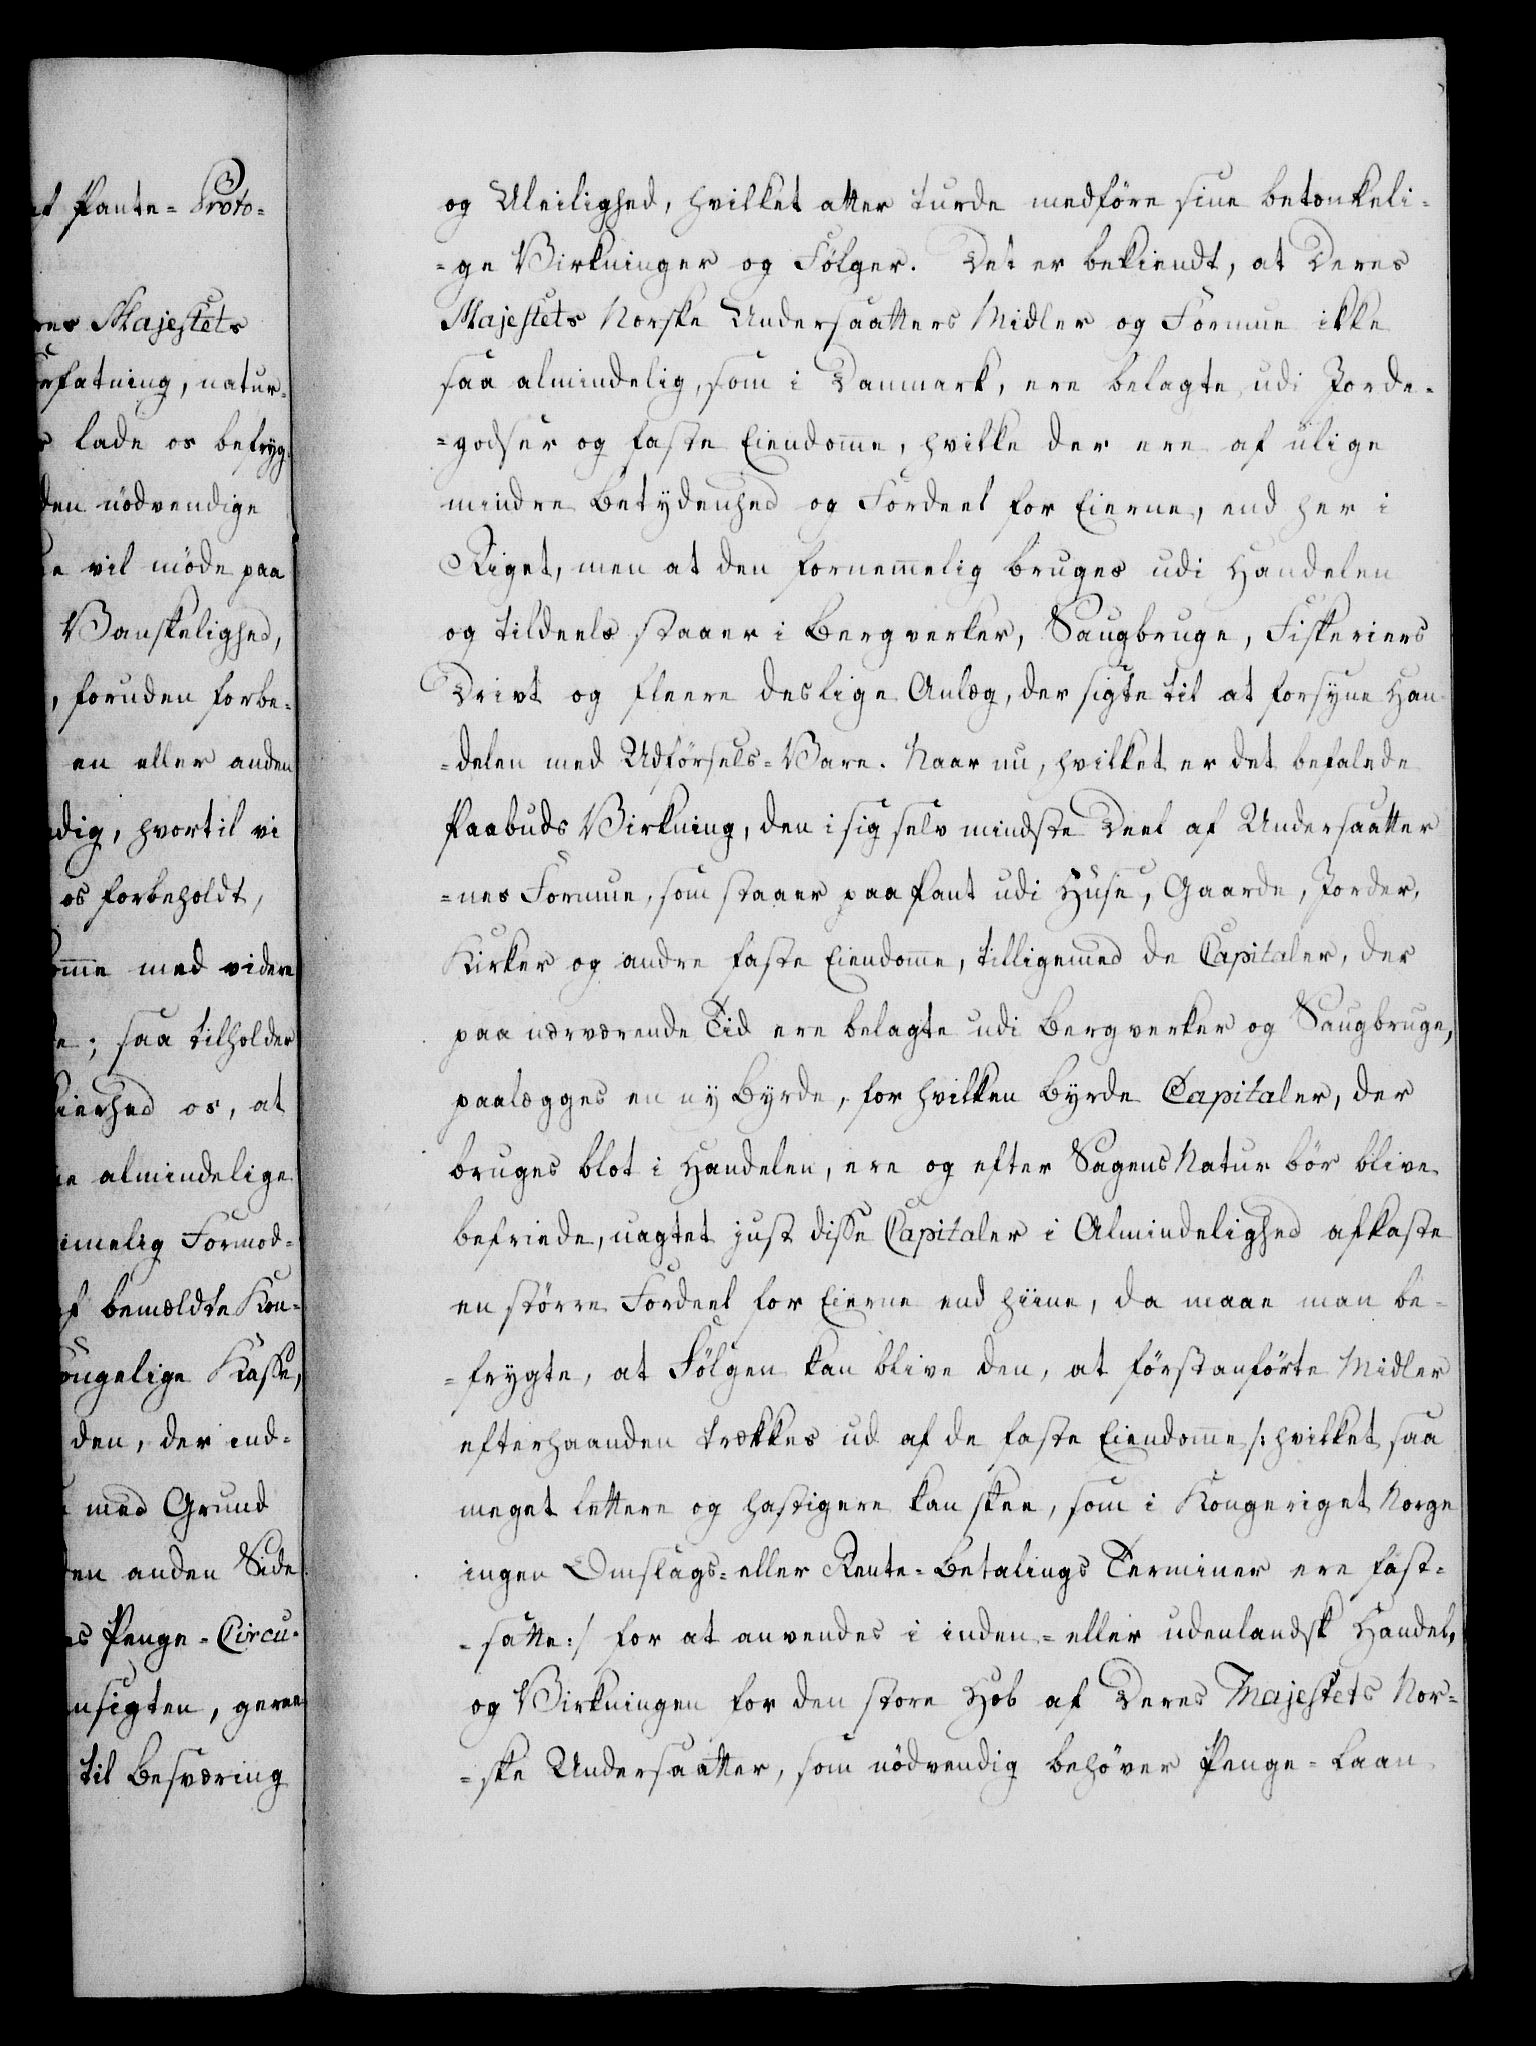 et Pante-Proto=
res Majestets
rfatning, natur=
lade os befryg=
den nödvendige
vil möde paa
Vanskelighed,
, foruden forbe=
en eller anden
dig, hvortil vi
os forbeholdt,
omme med videre
; saa tilholder
os, at
almindelige
imelig Formod=
af bemældte Kon=
ongelige Kasse,
den, der ind=
med Grund
den anden Side
Penge-Circu=
nsigten, gerne
til Besværing
og Uleilighed, hvilket atter turde medföre sine betænkeli=
=ge Virkninger og Fölger. Det er bekiendt, at Deres
Majestets Norske Undersaatters Midler og Formue ikke
saa almindelig, som i Danmark, ere belagte udi Jorde=
=godser og faste Eiendomme, hvilke der ere af ulige
mindre Betydenhed og Fordeel for Eierne, end her i
Riget, men at den fornemmelig bruges udi Handelen
og tildeels staaer i Bergverker, Saugbruge, Fiskeriers
Drivt og fleere deslige Anlæg, der sigte til at forsyne Han
=delen med Udförsels-Vare. Naar nu, hvilket er det befalede
Paabuds Virkning, den i sig selv mindste Deel af Undersaatter
=nes Formue, som staaer paa Pant udi Huse, Gaarde, Jorder,
Kirker og andre faste Eiendomme, tilligemed de Capitaler, der
paa nærværende Tid ere belagte udi Bergverker og Saugbruge,
paalægges en ny Byrde, for hvilken Byrde Capitaler, der
bruges blot i Handelen, ere og efter Sagens Natur bör blive
befriede, uagtet just disse Capitaler i Almindelighed afkaste
en större Fordeel for Eierne end hiine, da maae man be=
=frygte, at Fölgen kan blive den, at förstanförte Midler
efterhaanden trækkes ud af de faste Eiendomme /: hvilket saa
meget lettere og hastigere kan skee, som i Kongeriget Norge
ingen Omslags- eller Rente-Betalings Terminer ere fast=
=satte :/ for at anvendes i inden- eller udenlandsk Handel,
og Virkningen for den store Hob af Deres Majestets Nor=
=ske Undersaatter, som nödvendig behöver Penge-Laan